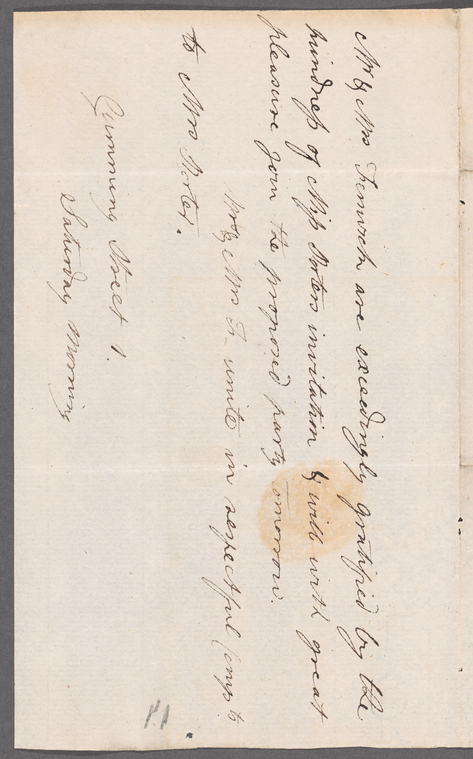 Mr & Mrs Fenwick are exceedingly gratified by the
kindness of Miss Porters invitation & will with great
pleasure join the proposed party tomorrow.
Mr & Mrs F- unite in respectful Comps to
to Mrs Porter.
Cumming Street 1.
Saturday Morning